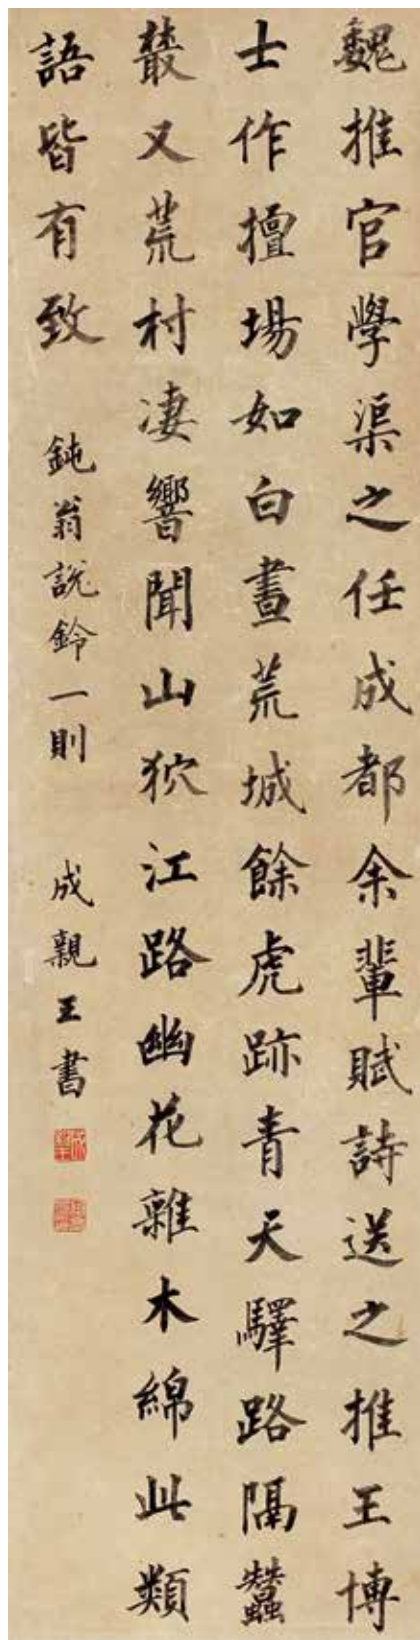 魏推官學渠之任成都余輩賦詩送之推王博
士作擅場如白晝荒城餘虎跡青天驛路隔蠶
叢又荒村凄響聞山狖江路幽花雜木綿此類
語皆有致
鈍翁說鈴一則
成親王書